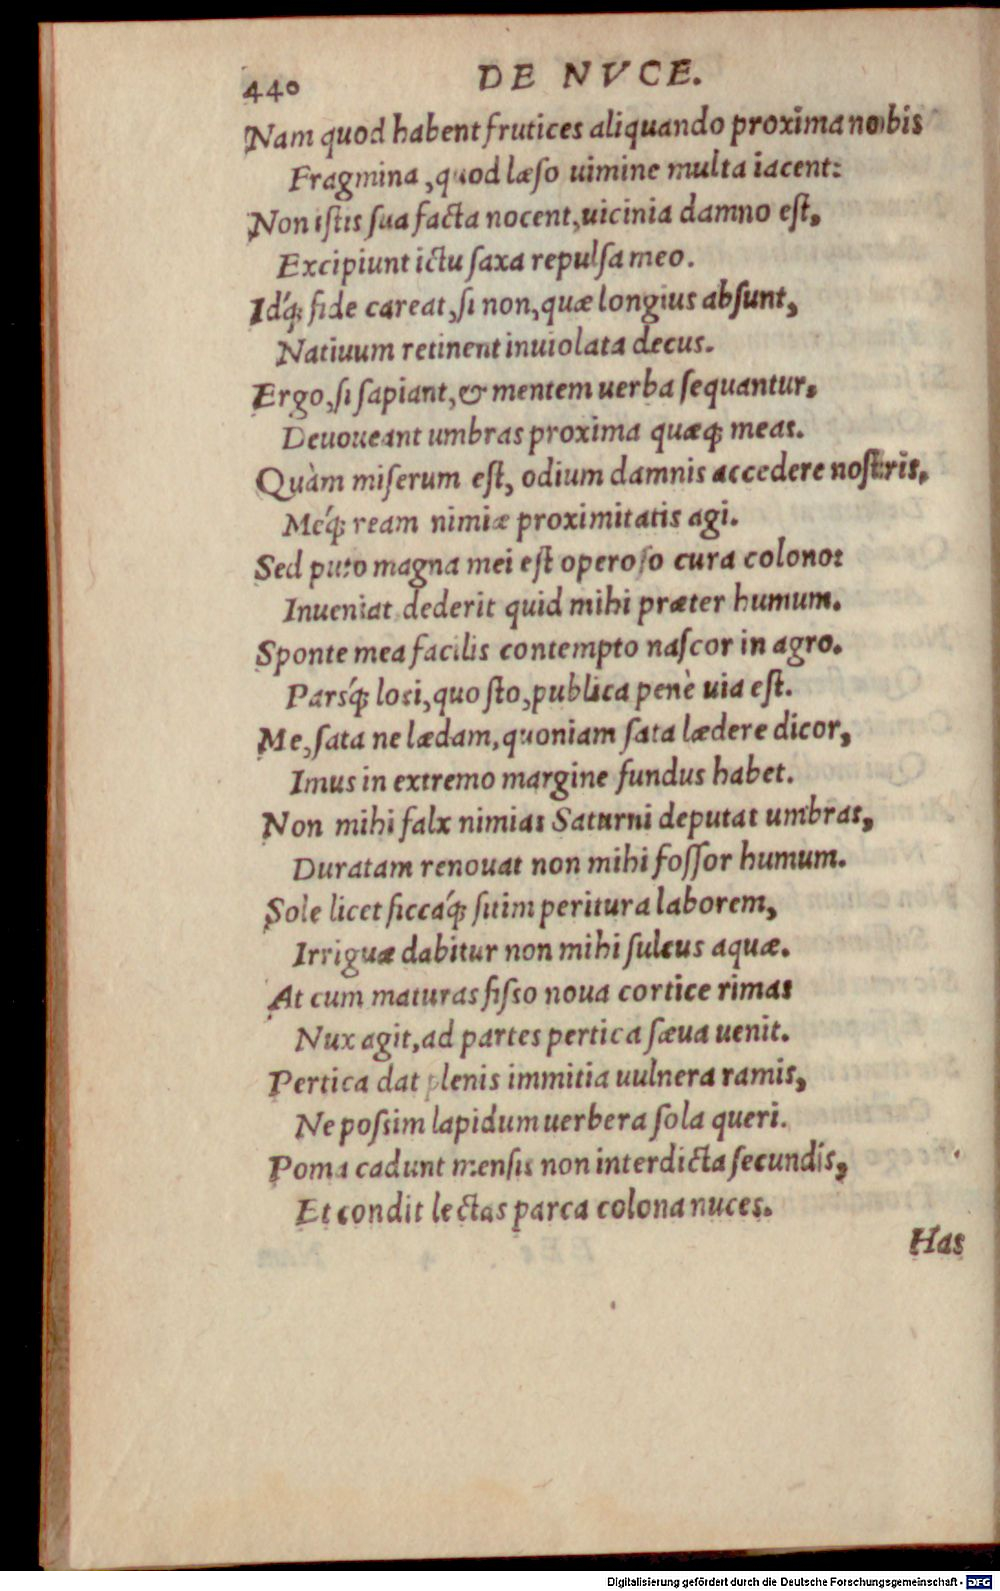 440 DE NVCE.
Nam quod habent frutices aliquando proxima nobis
Fragmina, quod læſo uimine multa iacent:
Non iſtis ſua facta nocent, uicinia damno eſt,
Excipiunt ictu ſaxa repulſa meo.
Idq́; fide careat, ſi non, quæ longius abſunt,
Natiuum retinent inuiolata decus.
Ergo, ſi ſapiant, & mentem uerba ſequantur,
Deuoueant umbras proxima quæq; meas.
Quàm miſerum eſt, odium damnis accedere noſtris,
Meq́; ream nimiæ proximitatis agi.
Sed puto magna mei eſt operoſo cura colono:
Inueniat, dederit quid mihi præter humum.
Sponte mea facilis contempto naſcor in agro.
Parsq́; loci, quo ſto, publica penè uia eſt.
Me, ſata ne lædam, quoniam ſata lædere dicor,
Imus in extremo margine fundus habet.
Non mihi falx nimias Saturni deputat umbras,
Duratam renouat non mihi foſſor humum.
Sole licet ſiccaq́; ſitim peritura laborem,
Irriguæ dabitur non mihi ſulcus aquæ.
At cum maturas fiſſo noua cortice rimas
Nux agit, ad partes pertica ſæua uenit.
Pertica dat plenis immitia uulnera ramis,
Ne poſsim lapidum uerbera ſola queri.
Poma cadunt menſis non interdicta ſecundis,
Et condit lectas parca colona nuces.
Has
Digitalisierung gefördert durch die Deutsche Forschungsgemeinschaft - DFG